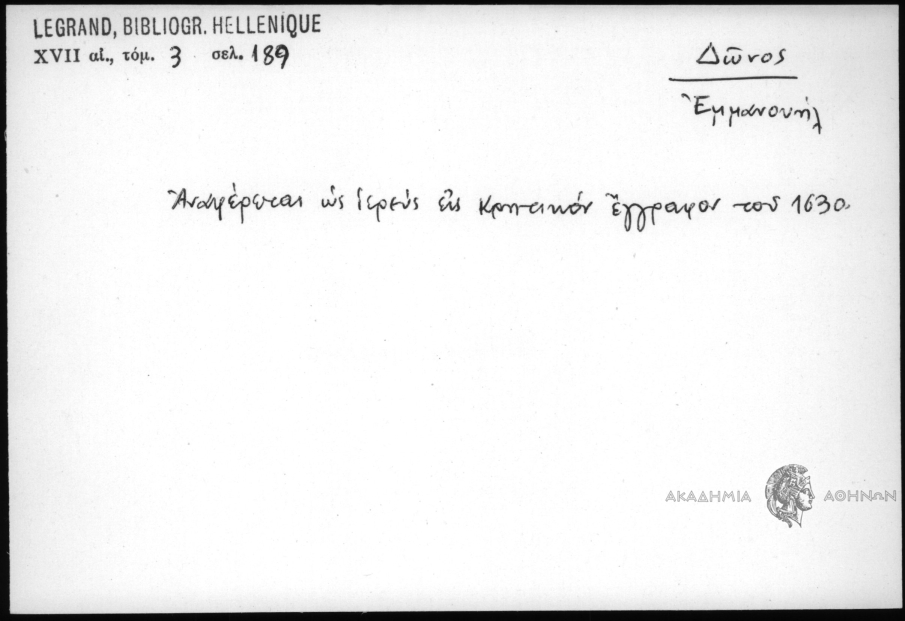 LEGRAND, BIBLIOGR. HELLENIQUE
XVII αἰ., τόμ. 3 σελ. 189
Δῶνος
Ἐμμανουήλ
Ἀναφέρεται ὡς ἱερεύς εἰς κρητικόν ἔγγραφον τοῦ 1630.
ΑΚΑΔΗΜΙΑ ΑΘΗΝΩΝ